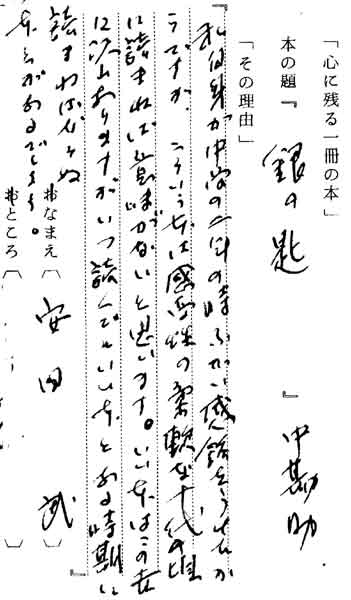 「心に残る一冊の本」
本の題『銀の匙』中勘助
「その理由」
『私自身が中学の二年の時ふかい感銘をうけたか
らですが、こういう本は感受性の柔軟な十代の頃
に読まねば意味がないと思います。いい本はこの世
に沢山ありますがいつ読んでもいい本とある時期に
読まねばならぬ
本とがあるでしょう。』
おなまえ〔安田 武〕
おところ〔 〕